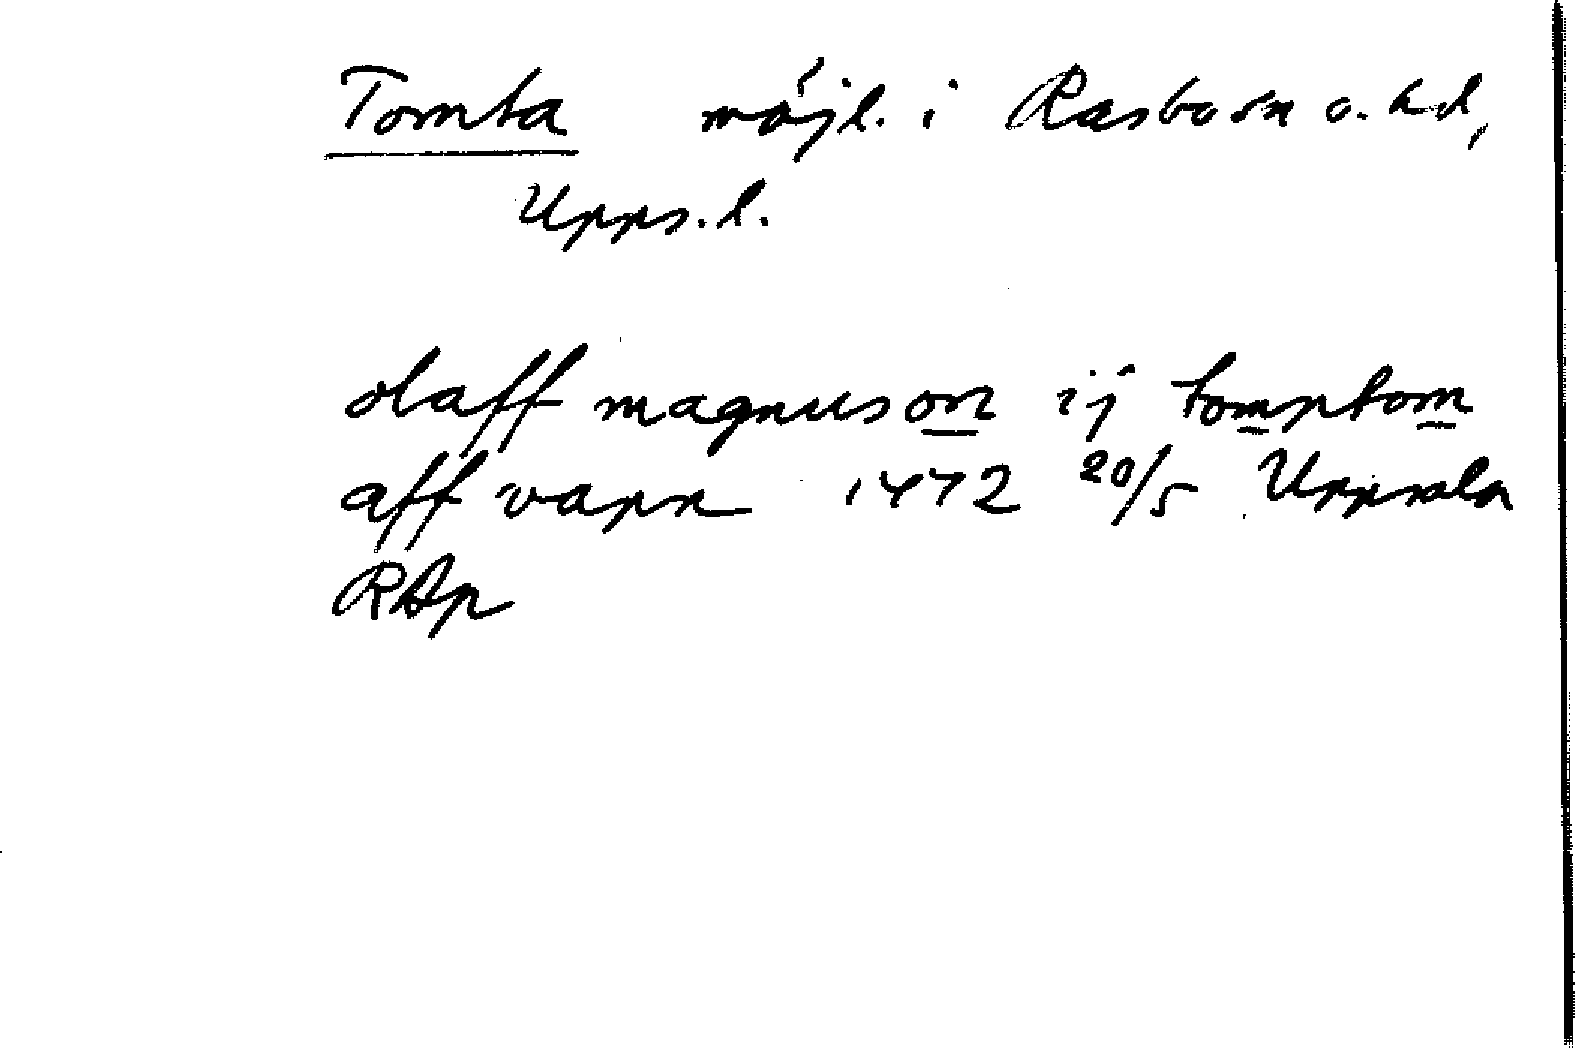 Tomta möjl. i Rasbo sn o. hd,
Upps.l.
olaff magnuson ij tomptom
aff vapn 1472 20/5 Uppsala
RAp